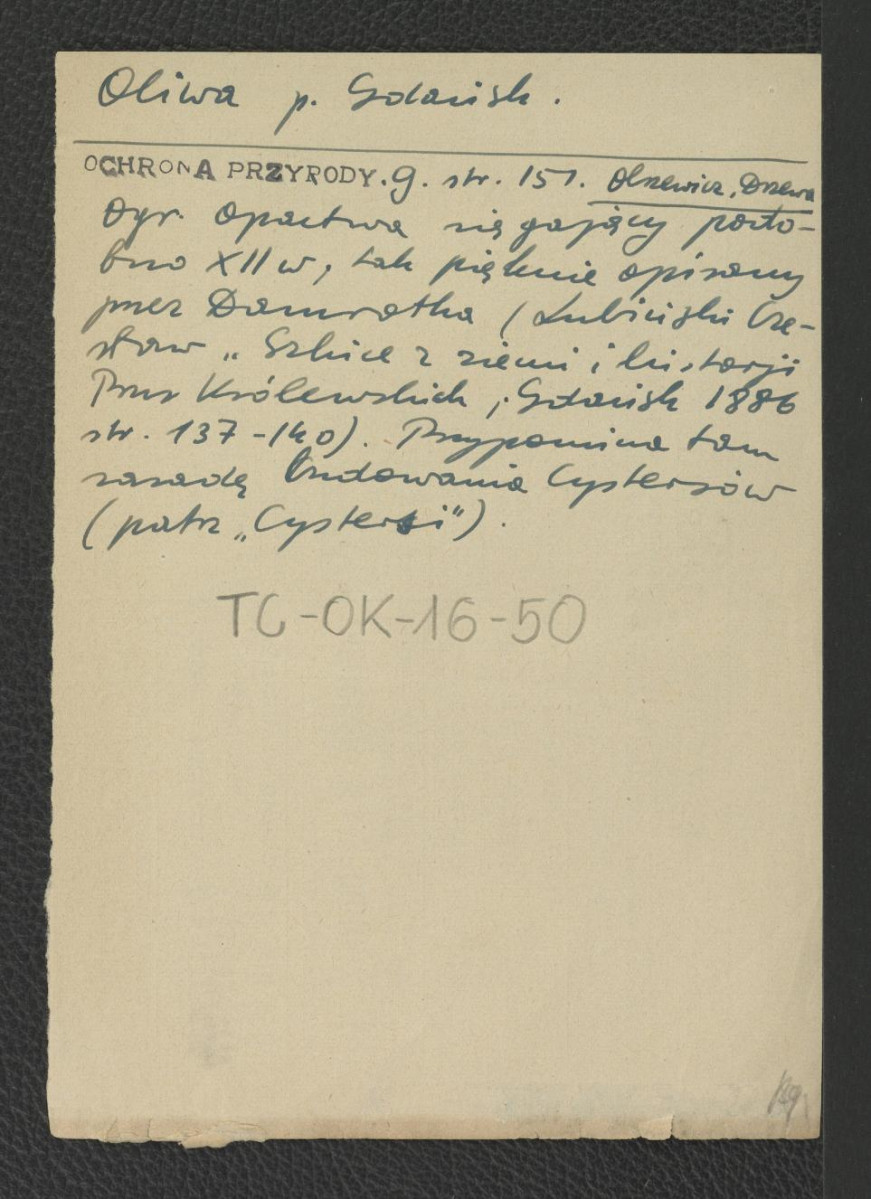 Oliwa p. Gdańsk.
OCHRONA PRZYRODY. 9. str. 151. Olszewicz, Drzewa
Ogr. opactwa sięgający podo-
bno XII w, tak pięknie opisany
przez Damrotha (Lubiński Cze-
sław „Szkice z ziemi i historji
Prus Królewskich, Gdańsk 1886
str. 137-140). Przypomina tam
zasadę budowania Cystersów
(patrz „Cystersi").
TC-OK-16-50